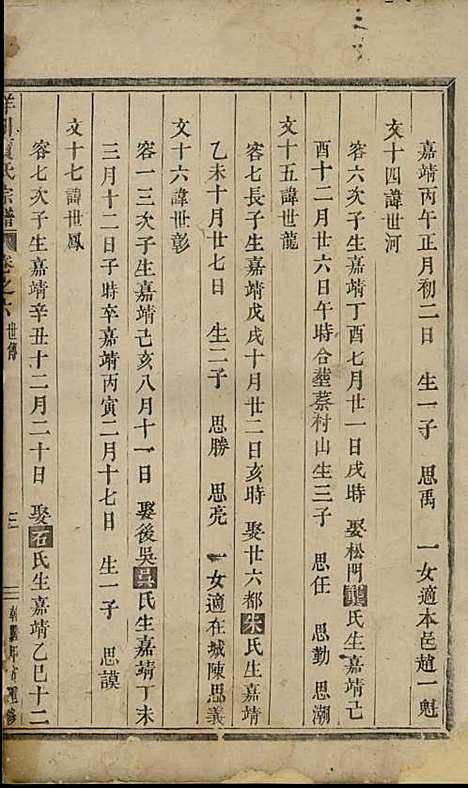 嘉靖丙午正月初二日　生一子　思禹　一女適本邑趙一魁
文十四諱世河
容六次子生嘉靖丁酉七月廿一日戌時　娶松門龔氏生嘉靖己
酉十二月廿六日午時合塟蔡村山生三子　思任　思勤　思潮
文十五諱世龍
容七長子生嘉靖戊戌十月廿二日亥時　娶廿六都朱氏生嘉靖
乙未十月廿七日　生二子　思勝　思亮　一女適在城陳思義
文十六諱世彰
容一三次子生嘉靖己亥八月十一日　娶後吳呂氏生嘉靖丁未
三月十二日子時卒嘉靖丙寅二月十七日　生一子　思謨
文十七諱世鳳
容七次子生嘉靖辛丑十二月二十日　娶石氏生嘉靖乙巳十二
氏宗譜　卷之六　世傳　三